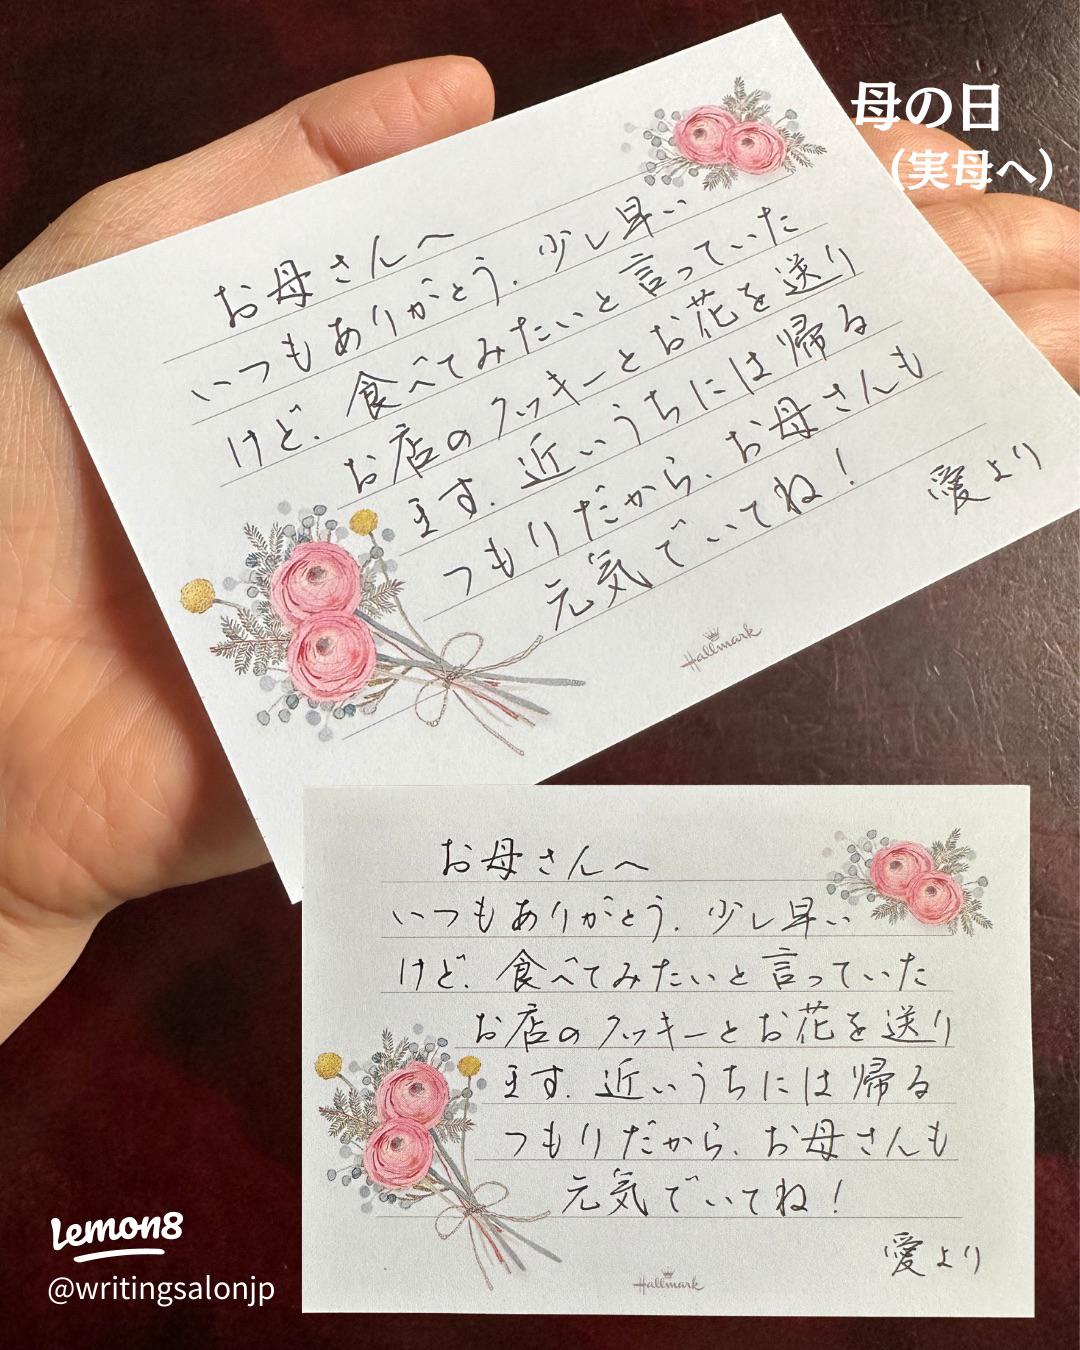 母の日
（実母へ）
お母さんへ
いつもありがとう。少し早い
けど、食べてみたいと言っていた
お店のクッキーとお花を送り
ます。近いうちには帰る
つもりだから、お母さんも
元気でいてね！
愛より
Hallmark
お母さんへ
いつもありがとう。少し早い
けど、食べてみたいと言っていた
お店のクッキーとお花を送り
ます。近いうちには帰る
つもりだから、お母さんも
元気でいてね！
愛より
Hallmark
Lemon8
@writingsalonjp